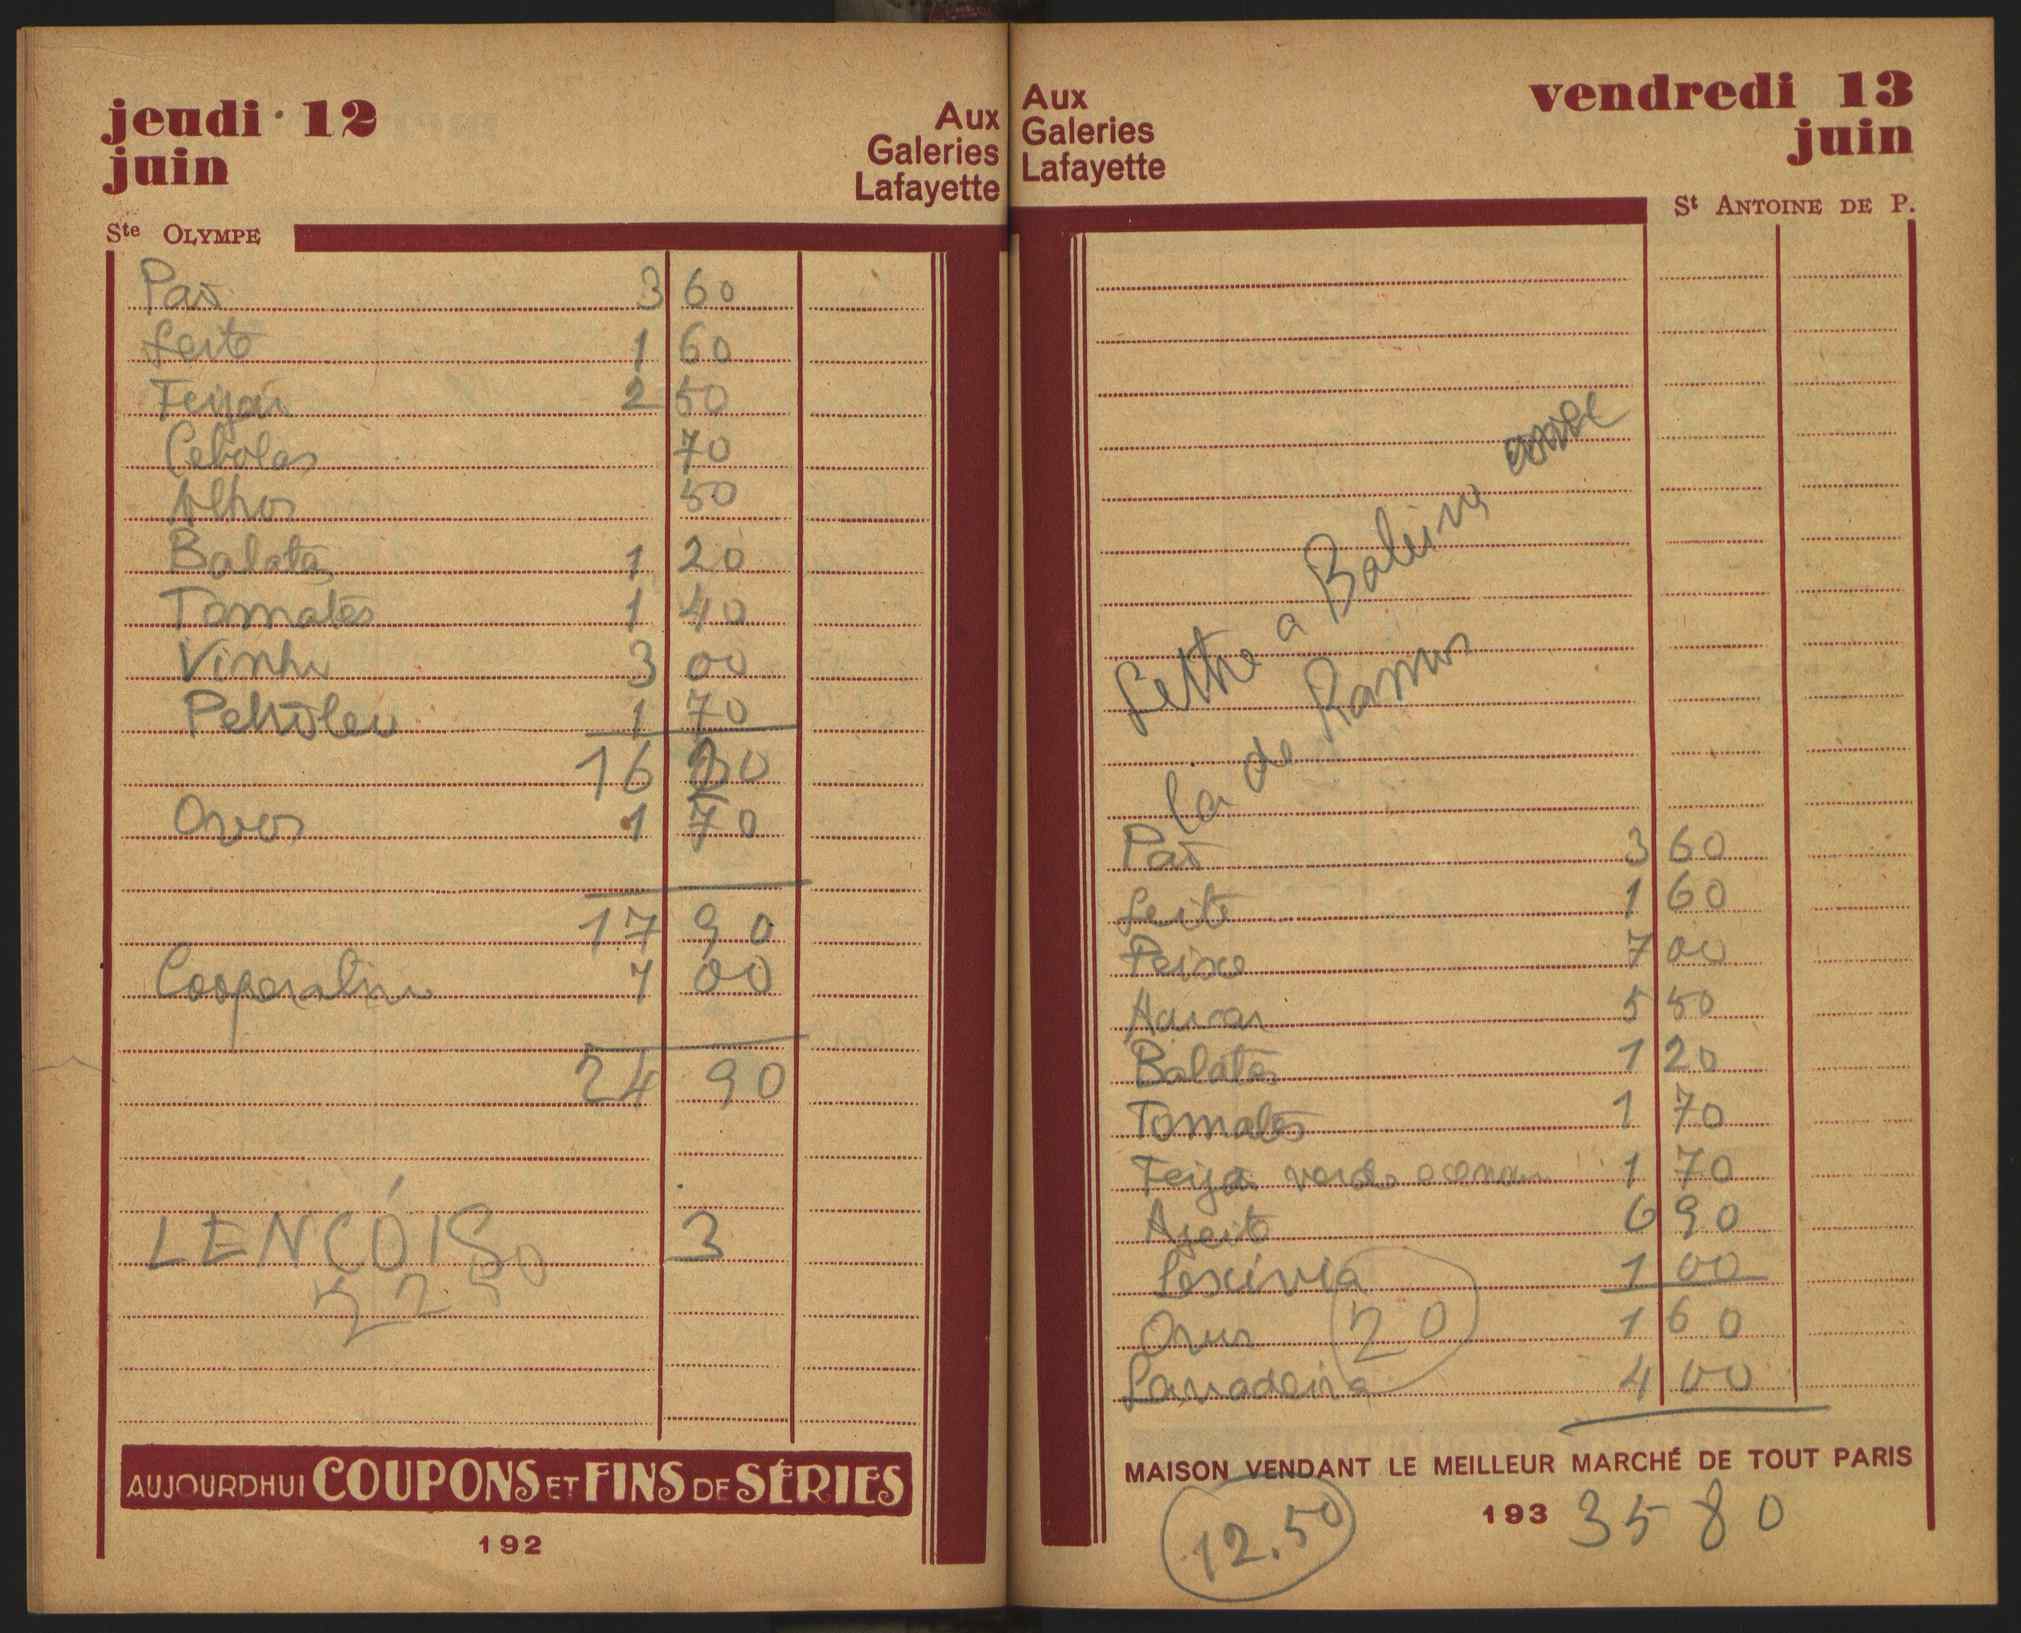 jeudi 12
juin
Aux
Galeries
Lafayette
Ste OLYMPE
Pão 3 60
Leite 1 60
Feijão 2 50
Cebolas 70
Alhos 50
Batatas 1 20
Tomates 1 40
Vinho 3 00
Petroleo 1 70
16 20
Ovos 1 70
17 90
Cooperativa 7 00
24 90
LENÇÓIS 3
AUJOURDHUI COUPONS ET FINS DE SÉRIES
192
Aux
Galeries
Lafayette
vendredi 13
juin
St ANTOINE DE P.
Lettre a
la de Ramos
Pão 3 60
Leite 1 60
Peixe 7 00
Açucar 5 50
Batatas 1 20
Tomates 1 70
Feijão verde 1 70
Azeite 6 90
Lexivia 1 00
Ovos 20 1 60
Lavadeira 4 00
MAISON VENDANT LE MEILLEUR MARCHÉ DE TOUT PARIS
193 35 80
12.50